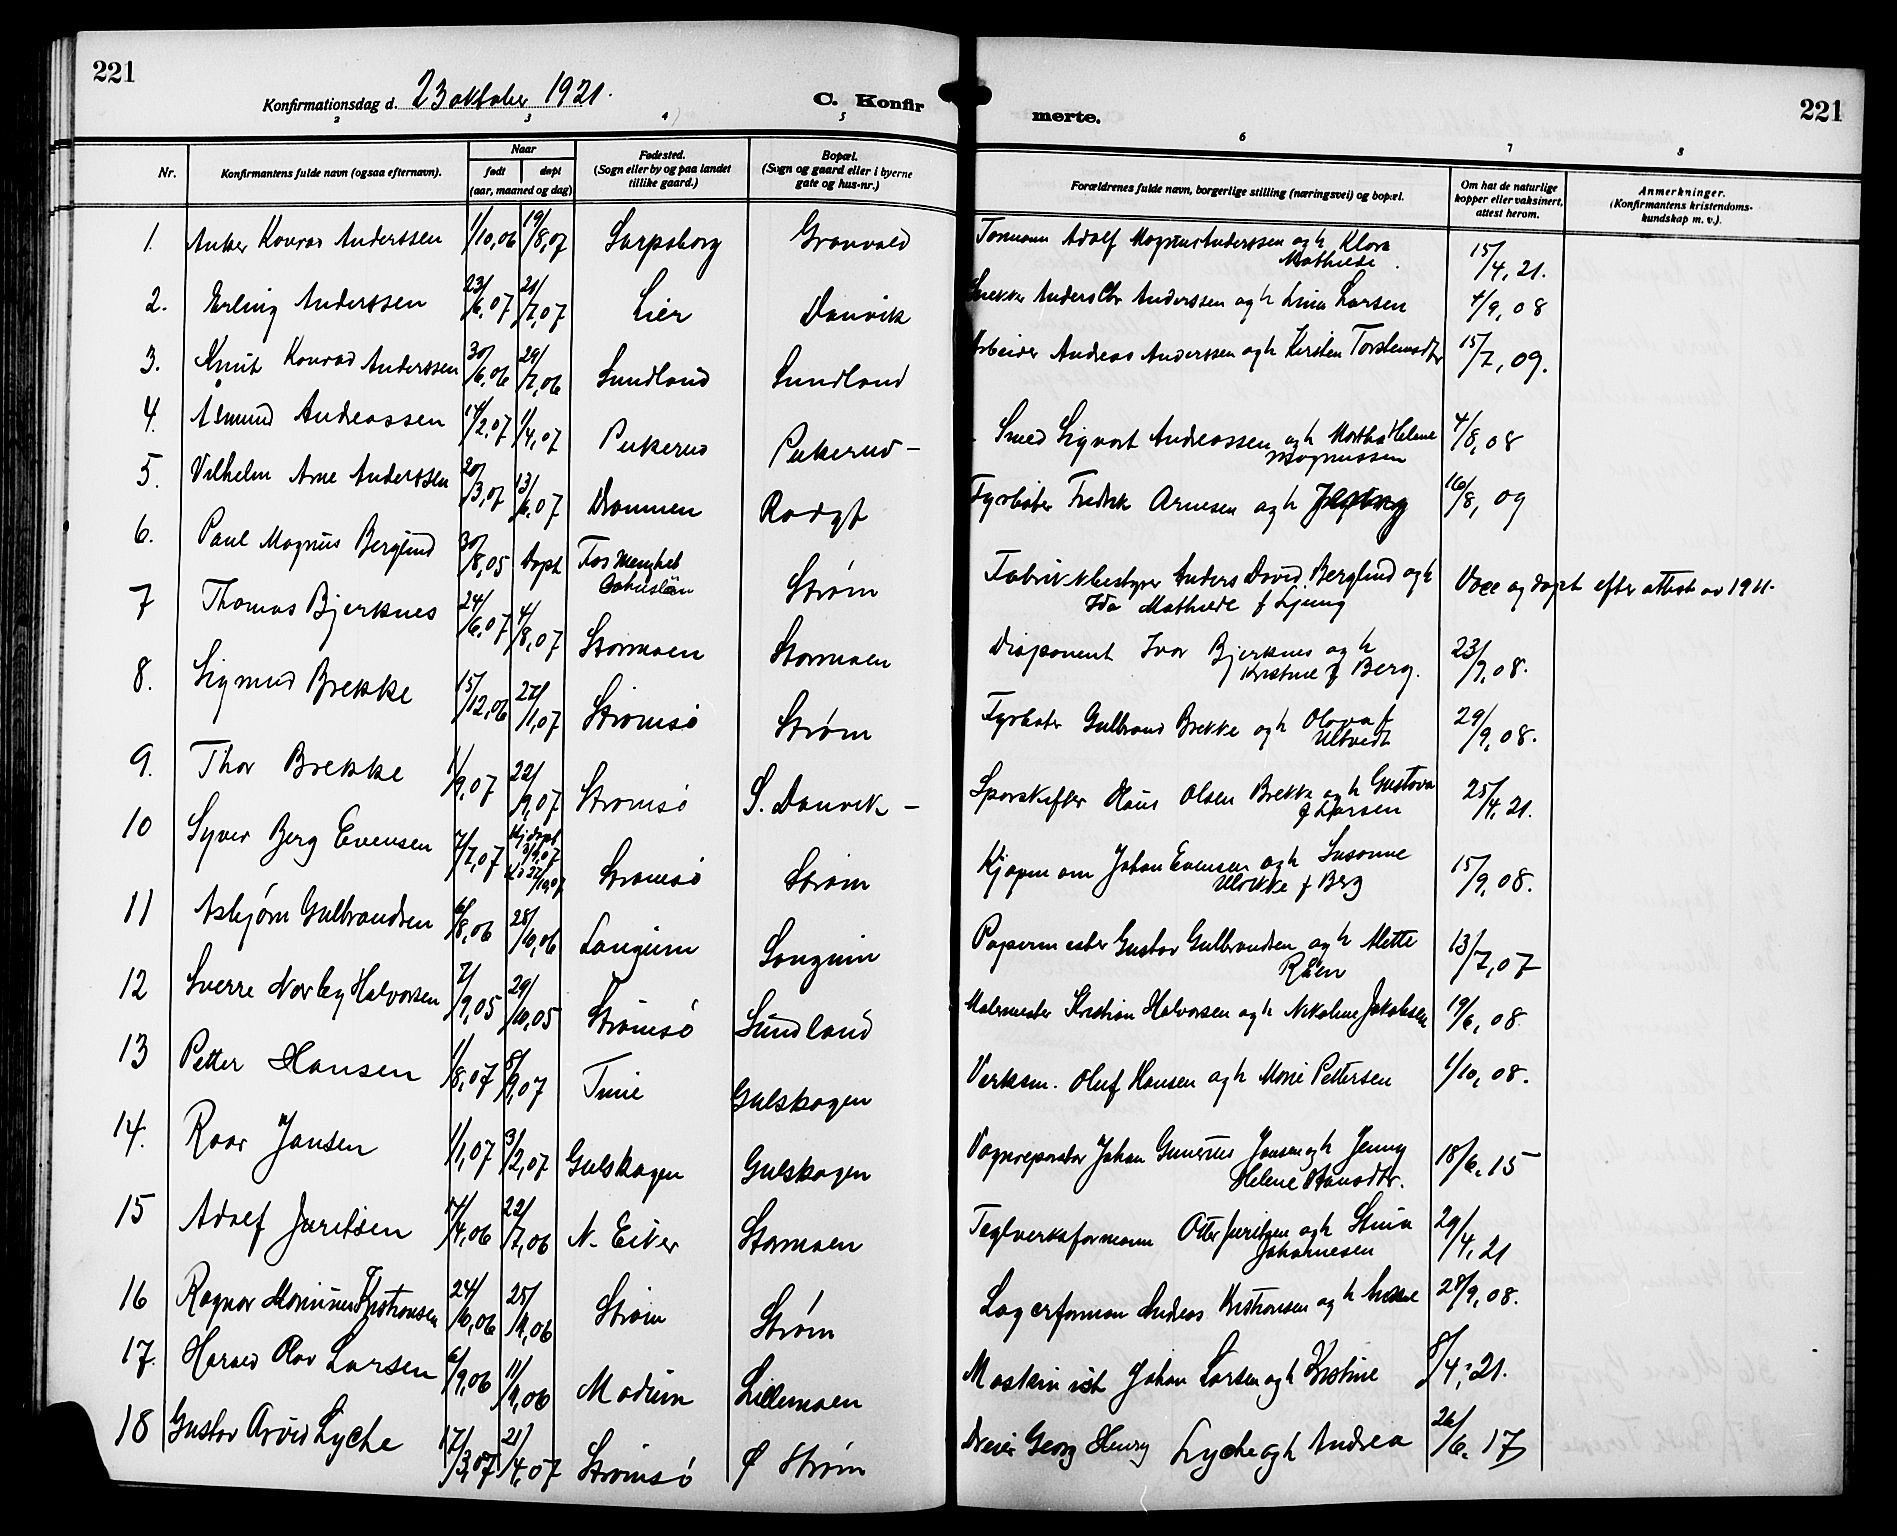 221
Konfirmationsdag d. 23 oktober 1921.
C. Konfir
merte.
221
2 3 4 5 6 7 8
Nr. Konfirmantens fulde navn (ogsaa efternavn). Naar født døpt (aar, maaned og dag) Fødested. (Sogn eller by og paa landet tillike gaard.) Bopæl. (Sogn og gaard eller i byerne gate og hus-nr.) Forældrenes fulde navn, borgerlige stilling (næringsvei) og bopæl. Om hat de naturlige kopper eller vaksinert, attest herom. Anmerkninger. (Konfirmantens kristendoms-kundskap m. v.).
1. Anker Konrad Anderssen 1/10,06 19/8,07 Sarpsborg Grønvold Formann Adolf Magnus Anderssen og h Klara Mathilde. 15/4,21.
2. Erling Anderssen 23/6,07 21/7,07 Lier Danvik Snekker Anders Chr Anderssen og h Lina Larsen 4/9,08
3. Knut Konrad Anderssen 30/6,06 29/7,06 Sundland Sundland Arbeider Andreas Anderssen og h Kirsten Torstensdtr 15/7,09.
4. Åsmund Andreassen 14/2,07 1/4,07 Pukerud Pukerud – Smed Sigvart Andreassen og h Martha Helene Magnussen 4/8,08
5. Vilhelm Arne Anderssen 20/3,07 13/6,07 Drammen Rødgt Fyrbøter Fredrik Arnesen og h 16/8,09
6. Paul Magnus Berglund 30/8,05 Døpt Fos Menghet Strøm Fabrikkbestyrer Anders David Berglund og h Ida Mathilde f Ljung Vacc og døpt efter attest av 1911.
7 Thomas Bjerknes 24/6,07 4/8,07 Stormoen Stormoen Disponent Ivar Bjerknes og h Kristine f Berg. 23/9,08.
8. Sigmund Brekke 15/12,06 27/1,07 Strømsø Strøm Fyrbøter Gulbrand Brekke og h Olava f Ultvedt 29/9,08.
9. Thor Brekke 1/9,07 22/9,07 Strømsø S. Danvik – Sporskifter Hans Olsen Brekke og h Gustava f Larsen 25/4,21.
10 Syver Berg Evensen 7/7,07 Hj døpt Strømsø Strøm Kjøpm om Johan Evensen og h Susanne Ulrikke f Berg 15/9,08.
11 Asbjørn Gulbrandsen 6/8,06 28/10,06 Langum Langum Papermester Gustav Gulbrandsen og h Mette Råen 13/7,07
12 Sverre Norby Halvorsen 7/9,05 29/10,05 Strømsø Sundland Malermester Kristian Halvorsen og h Nikoline Jakobsen 19/6,08
13 Petter Hansen 1/8,07 8/9,07 Tune Gulskogen Verksm. Oluf Hansen og h Marie Pettersen 1/10,08.
14. Roar Jansen 1/1,07 3/2,07 Gulskogen Gulskogen Vognreparatør Johan Gunerius Jansen og h Jenny Helene Hansdtr. 18/6.15
15 Adolf Juritsen 17/4,06 22/7,06 N. Eiker Stormoen Teglverksformann Otter Juritsen og h Stina Johannesen 29/4,21
16 Ragnar Monimus Kristiansen 24/6,06 25/4,06 Strøm Strøm Lagerforman Andreas Kristiansen og h 28/9,08.
17. Harald Olav Larsen 6/9,06 11/9,06 Modum Lillemoen Maskinist Johan Larsen og h Kristine 8/4,21.
18 Gustav Arvid Lyche 17/3,07 21/4,07 Strømsø Ø Strøm Dreier Georg Henry Lyche og h Andrea 26/6.17